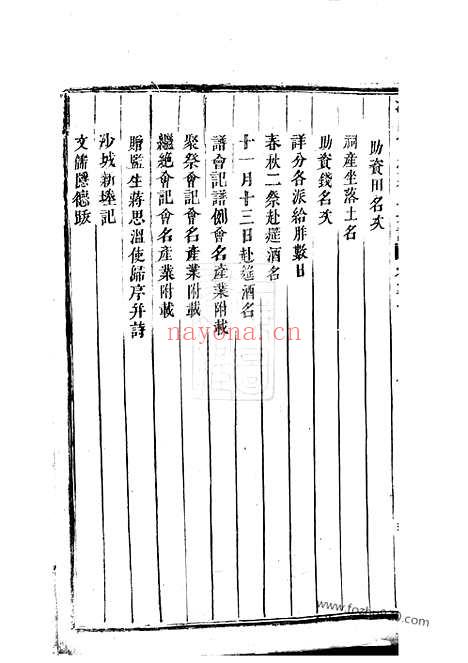 助資田名次
祠產坐落土名
助資錢名次
詳分各派給胙數目
春秋二祭赴筵酒名
十一月十三日赴筵酒名
譜會記譜例會名產業附載
聚祭會記會名產業附載
繼絶會記會名產業附載
贈監生蔣思溫使歸序并詩
沙城新塋記
文儒隱德跋
nayona.cn
www.fozhu920.com